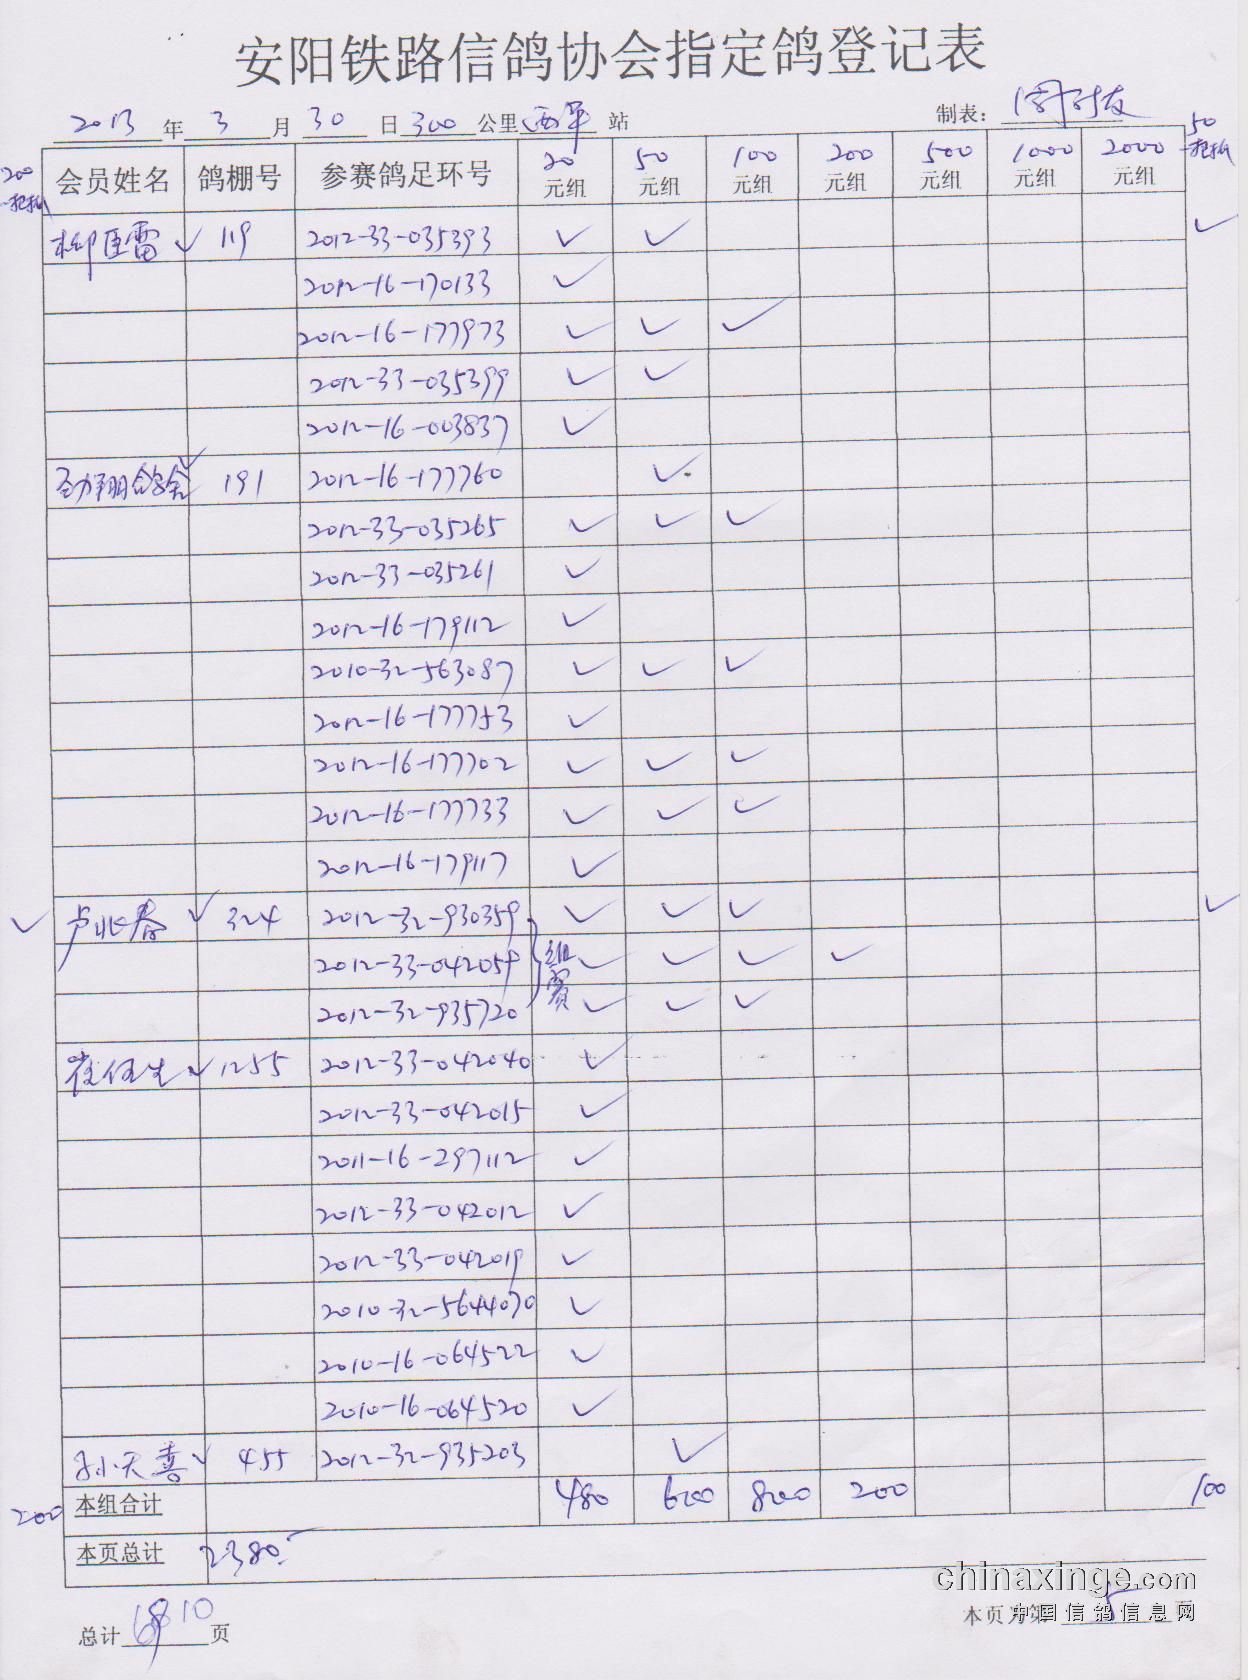 安阳铁路信鸽协会指定鸽登记表
2013 年 3 月 30 日 300 公里 西平 站 制表：
会员姓名 鸽棚号 参赛鸽足环号 20元组 50元组 100元组 200元组 500元组 1000元组 2000元组
200
50
柳匡雷 ✓ 119 2012-33-035393 ✓ ✓ ✓
2012-16-170133 ✓
2012-16-177973 ✓ ✓ ✓
2012-33-035399 ✓ ✓
2012-16-003837 ✓
劲翔鸽舍 ✓ 191 2012-16-177760 ✓
2012-33-035265 ✓ ✓ ✓
2012-33-035261 ✓
2012-16-179112 ✓
2010-32-563087 ✓ ✓ ✓
2012-16-177753 ✓
2012-16-177702 ✓ ✓ ✓
2012-16-177733 ✓ ✓ ✓
2012-16-179117 ✓
✓ 卢兆春 ✓ 324 2012-32-930359 ✓ ✓ ✓ ✓
2012-33-042059 组赛 ✓ ✓ ✓ ✓
2012-32-935720 ✓ ✓ ✓
崔伍生 ✓ 1255 2012-33-042040 ✓
2012-33-042015 ✓
2011-16-297112 ✓
2012-33-042012 ✓
2012-33-042019 ✓
2010-32-5644070 ✓
2010-16-064522 ✓
2010-16-064520 ✓
孙天喜 ✓ 455 2012-32-935203 ✓
200 本组合计 480 600 800 200 100
本页总计 2380
总计 10 页 本页为第 5 页
chinaxinge.com
中国信鸽信息网